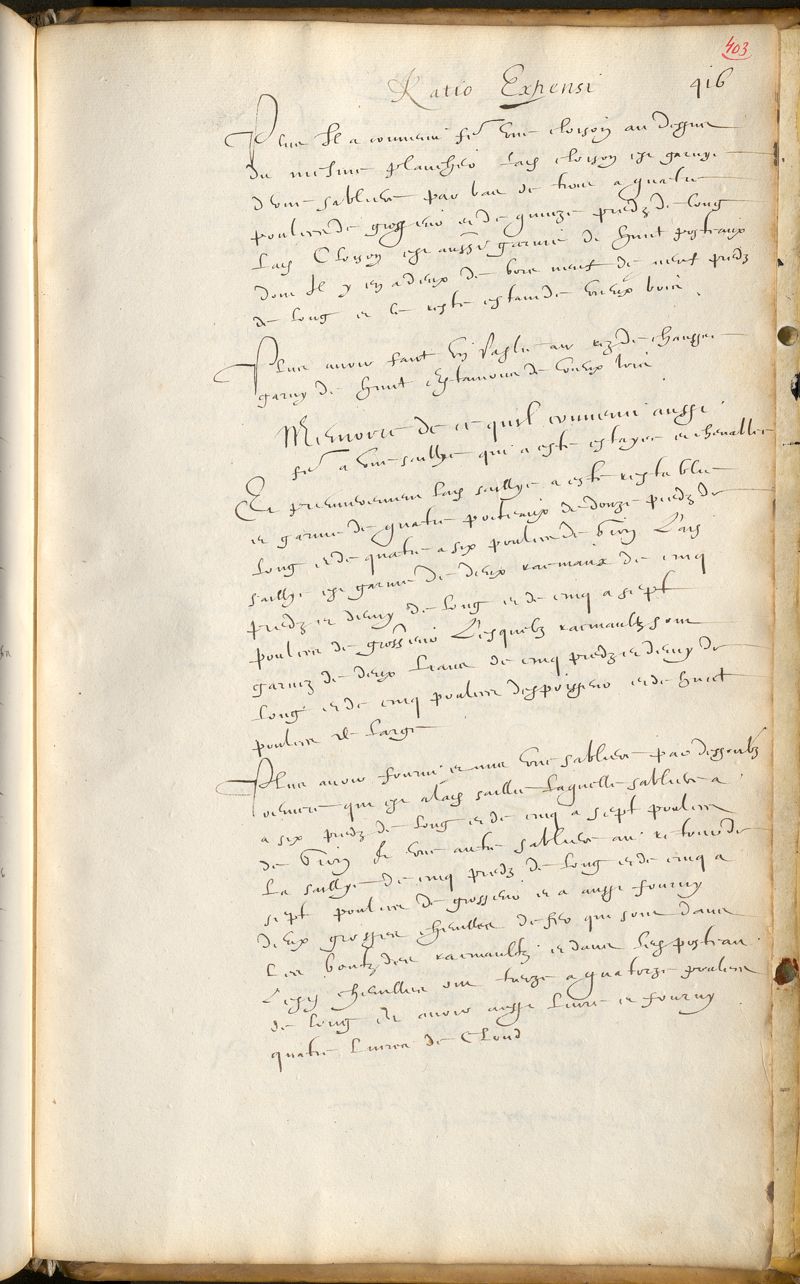 403
Ratio Expensi 416
Plus Il a convenu fe une cloison au dessus
du mesme plancher lad cloison est garnye
d'une sabliere par bas de trois a quatre
poulces de grosseur et de quinze piedz de long
Lad Cloison est aussi garnie de huict posteaux
dont Il y en a deux de bois neuf de neuf piedz
de long et le reste estant de vieux bois
Plus avoir faict au rez de chaussee
garny de huict de vieux bois
Memoire de ce quil convenu aussi
fe a une saillye qui a este estayee et chevallee
Et premierement lad saillye a este restablie
et garnie de quatre poteaux de douze piedz de
long et de quatre a six poulces de Lad
saillye est garnie de deux racinaux de cinq
piedz et demy de long et de cinq a sept
poulces de grosseur Lesquelz racinaultz sont
garniz de deux liens de cinq piedz et demy de
long et de cinq poulces despoisseur et de huict
poulces de large
Plus avoir fourni et mis une sabliere par dessoubz
qui est a lad saillie laquelle sabliere a
a six piedz de long et de cinq a sept poulces
de et une autre sabliere au retour de
la saillye de cinq piedz de long et de cinq a
sept poulces de grosseur et a aussi fourny
deux grosses chevilles de fer qui sont dans
les boutz des racinaultz et dans les posteau
Lesd chevilles ont treize a quatorze poulces
de long Et avoir aussi livre et fourny
quatre livres de Cloud